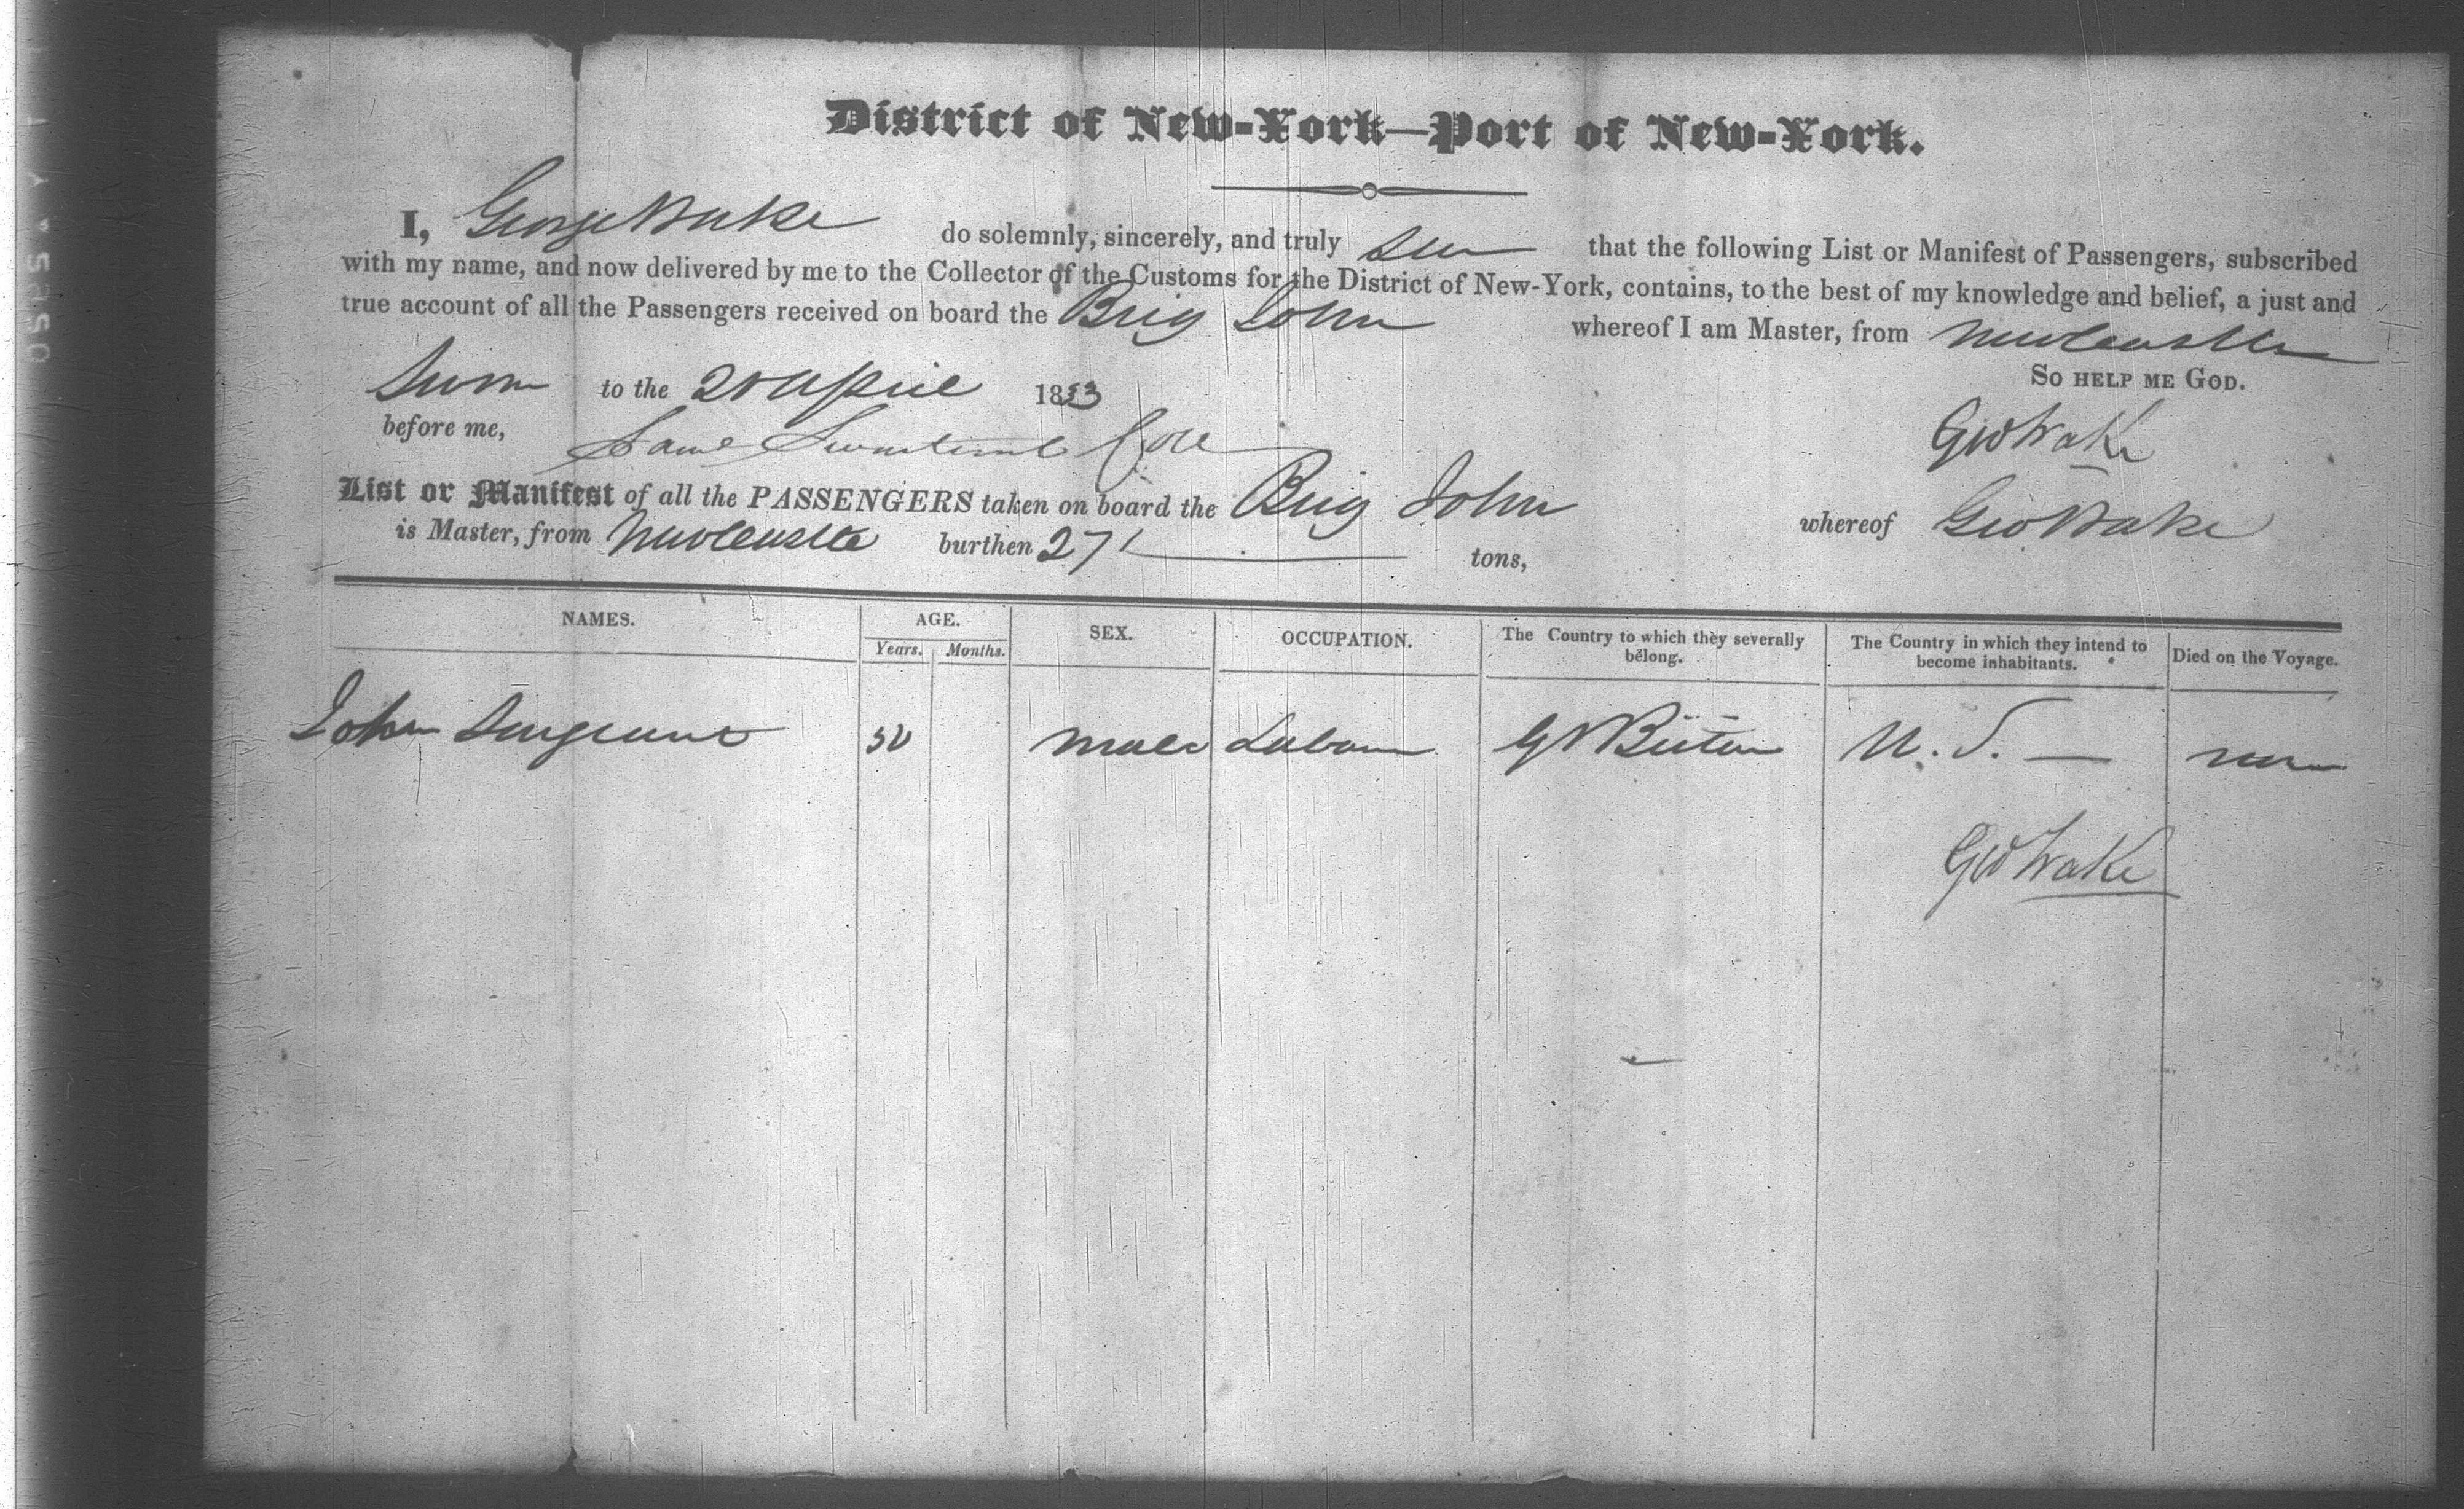 District of New-York—Port of New-York.
I, George Wake do solemnly, sincerely, and truly that the following List or Manifest of Passengers, subscribed
with my name, and now delivered by me to the Collector of the Customs for the District of New-York, contains, to the best of my knowledge and belief, a just and
true account of all the Passengers received on board the Brig John whereof I am Master, from Newcastle
So help me God.
Sworn to the 20 April 1833
Geo Wake
before me,
List or Manifest of all the PASSENGERS taken on board the Brig John whereof Geo Wake
is Master, from Newcastle burthen 271 tons,
NAMES. AGE. SEX. OCCUPATION. The Country to which they severally belong. The Country in which they intend to become inhabitants. Died on the Voyage.
Years. Months.
John Sergeant male G Britain U. S.
Geo Wake